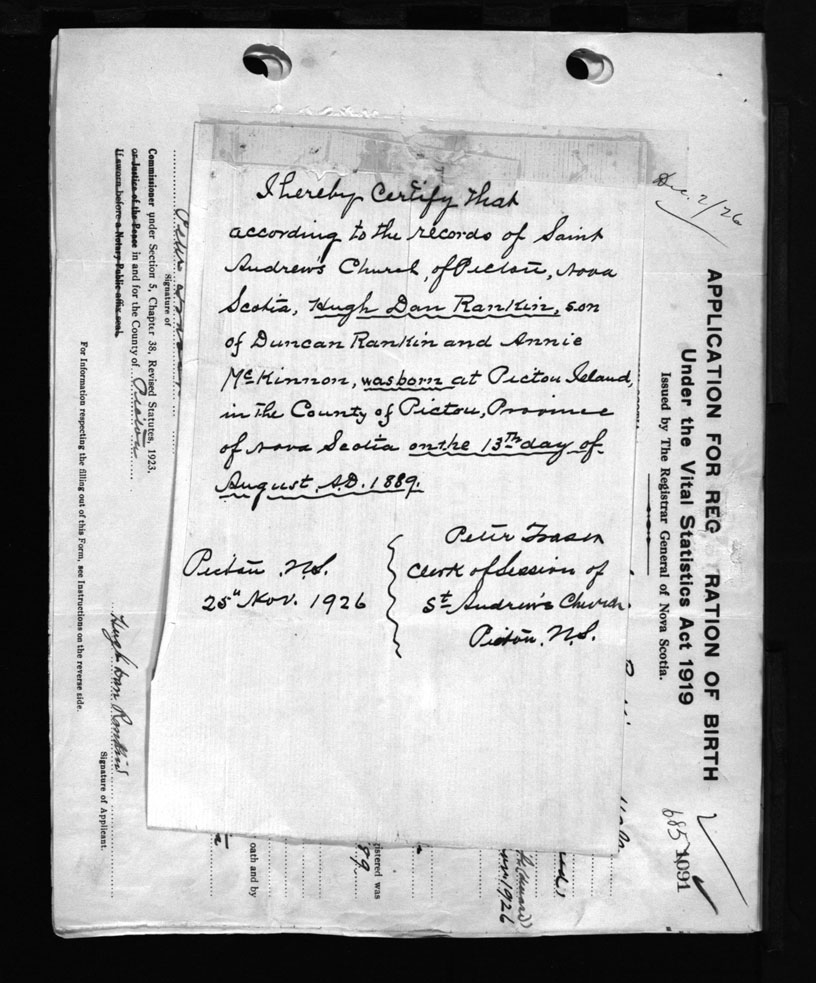 I hereby Certify that
according to the records of Saint
Andrew's Church, of Pictou, Nova
Scotia, Hugh Dan Rankin, son
of Duncan Rankin and Annie
McKinnon, was born at Pictou Island,
in the County of Pictou, Province
of Nova Scotia on the 13th day of
August, A.D. 1889.
Peter Fraser
Clerk of Session of
St Andrew's Church
Pictou, N.S.
Pictou, N.S.
25" Nov. 1926
Dec. 2/26
APPLICATION FOR REG RATION OF BIRTH
Under the Vital Statistics Act 1919
Issued by The Registrar General of Nova Scotia.
685
1091
1926
istered was
89
oath and by
Signature of
Commissioner under Section 5, Chapter 38, Revised Statutes, 1923.
or Justice of the Peace in and for the County of Pictou
If sworn before a Notary Public affix seal.
Hugh Dan Rankin
Signature of Applicant.
For Information respecting the filling out of this Form, see Instructions on the reverse side.